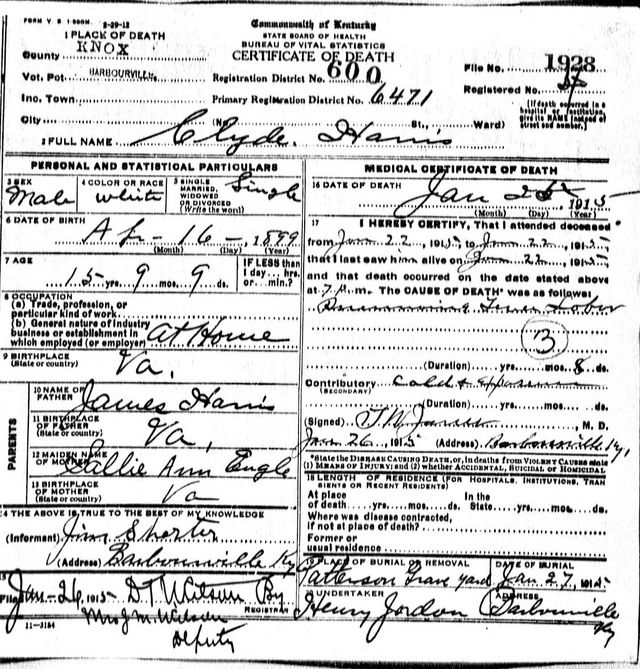 FORM V S 1 500M. 2-29-12
Commonwealth of Kentucky
STATE BOARD OF HEALTH
BUREAU OF VITAL STATISTICS
CERTIFICATE OF DEATH
1 PLACE OF DEATH
County KNOX
Vot. Pct. BARBOURVILLE
Inc. Town
City (No. St., Ward)
Registration District No. 600
Primary Registration District No. 6471
File No. 1928
Registered No.
(If death occurred in a hospital or institution, give its NAME instead of street and number.)
2 FULL NAME Clyde Harris
PERSONAL AND STATISTICAL PARTICULARS
3 SEX Male
4 COLOR OR RACE white
5 SINGLE, MARRIED, WIDOWED OR DIVORCED (Write the word) Single
6 DATE OF BIRTH
Ap - 16 - , 1899
(Month) (Day) (Year)
7 AGE
15 yrs. 9 mos. 9 ds.
IF LESS than 1 day... hrs. or... min.?
8 OCCUPATION
(a) Trade, profession, or particular kind of work
(b) General nature of industry business or establishment in which employed (or employer) at Home
9 BIRTHPLACE (State or country) Va.
PARENTS
10 NAME OF FATHER James Harris
11 BIRTHPLACE OF FATHER (State or country) Va.
12 MAIDEN NAME OF MOTHER Sallie Ann Engle
13 BIRTHPLACE OF MOTHER (State or country) Va
14 THE ABOVE IS TRUE TO THE BEST OF MY KNOWLEDGE
(Informant) Jim Shorter
(Address) Barbourville Ky
15
Filed Jan-26, 1915 D T Wilson By REGISTRAR
Mrs J M Wilson
Deputy
11-3184
MEDICAL CERTIFICATE OF DEATH
16 DATE OF DEATH
Jan 25, 1915
(Month) (Day) (Year)
17 I HEREBY CERTIFY, That I attended deceased
from Jan 22, 1915, to Jan 22, 1915,
that I last saw him alive on Jan 22, 1915,
and that death occurred on the date stated above
at 7 P.m. The CAUSE OF DEATH* was as follows:
Lobar
3
(Duration) yrs. mos. 8 ds.
Contributory cold & exposure
(SECONDARY)
(Duration) yrs. mos. ds.
(Signed) , M. D.
Jan 26, 1915 (Address) Barbourville Ky,
*State the DISEASE CAUSING DEATH, or, in deaths from VIOLENT CAUSES state
(1) MEANS OF INJURY; and (2) whether ACCIDENTAL, SUICIDAL or HOMICIDAL
18 LENGTH OF RESIDENCE (FOR HOSPITALS, INSTITUTIONS, TRANSIENTS OR RECENT RESIDENTS)
At place of death yrs. mos. ds. In the State yrs. mos. ds.
Where was disease contracted, if not at place of death?
Former or usual residence
19 PLACE OF BURIAL OR REMOVAL Patterson Grave yard
DATE OF BURIAL Jan 27, 1915
20 UNDERTAKER Henry Jordon
ADDRESS Barbourville Ky